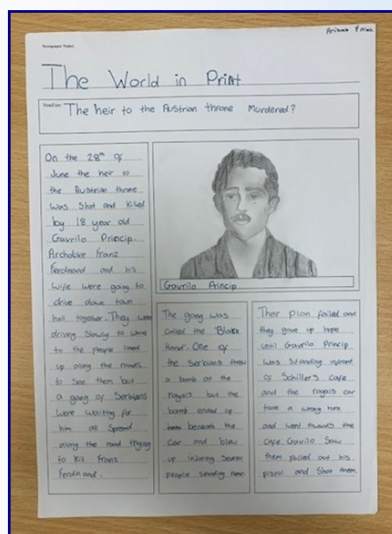 Arianna
Newspaper Name:
The World in Print
Headline: The heir to the Austrian throne Murdered?
On the 28th of
June the heir to
the Austrian throne
was shot and killed
by 18 year old
Gavrilo Princip.
Archduke Franz
Ferdinand and his
wife were going to
drive down town
hall together. They were
driving slowly to wave
to the people lined
up along the roads
to see them but
a gang of Serbians
were waiting for
him all spread
along the road trying
to kill Franz
Ferdinand.
Gavrilo Princip
The gang was
called the 'Black
Hand'. One of
the Serbians threw
a bomb at the
royals but the
bomb ended up
beneath the
car and blew
up injuring seven
people standing near
Thier plan failed and
they gave up hope
until Gavrilo Princip
was standing infront
of Schiller's cafe
and the royals car
took a wrong turn
and went towards the
cafe. Gavrilo saw
them pulled out his
pistol and shot them.